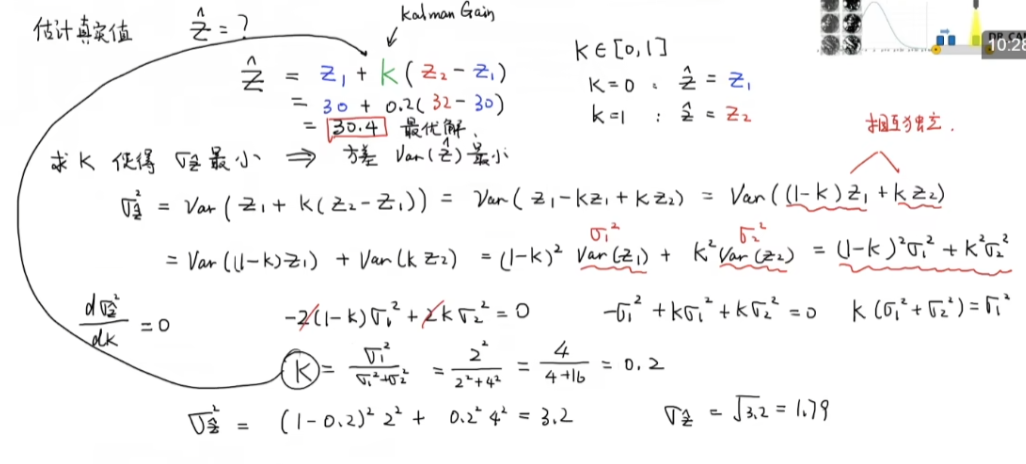 Kalman Gain
估计真实值 ẑ = ?
ẑ = z₁ + k(z₂ - z₁)
= 30 + 0.2(32 - 30)
= 30.4 最优解.
k ∈ [0,1]
k=0 : ẑ = z₁
k=1 : ẑ = z₂
DR
10:28
相互独立.
求 k 使得 σẑ 最小 ⇒ 方差 Var(ẑ) 最小
σẑ² = Var(z₁ + k(z₂ - z₁)) = Var(z₁ - kz₁ + kz₂) = Var((1-k)z₁ + kz₂)
σ₁² σ₂²
= Var((1-k)z₁) + Var(kz₂) = (1-k)² Var(z₁) + k² Var(z₂) = (1-k)²σ₁² + k²σ₂²
dσẑ²/dk = 0 -2(1-k)σ₁² + 2kσ₂² = 0 -σ₁² + kσ₁² + kσ₂² = 0 k(σ₁² + σ₂²) = σ₁²
k = σ₁²/(σ₁²+σ₂²) = 2²/(2²+4²) = 4/(4+16) = 0.2
σẑ² = (1-0.2)² 2² + 0.2² 4² = 3.2 σẑ = √3.2 = 1.79